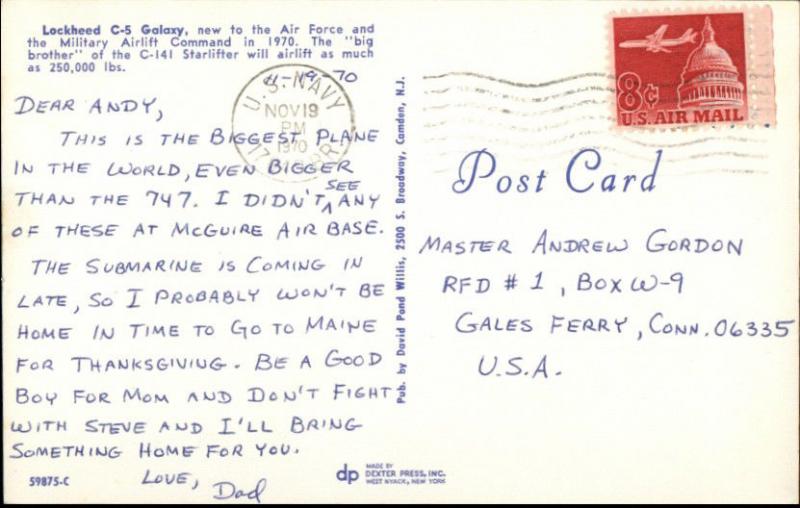 Lockheed C-5 Galaxy, new to the Air Force and
the Military Airlift Command in 1970. The "big
brother" of the C-141 Starlifter will airlift as much
as 250,000 lbs.
11-19-70
DEAR ANDY,
THIS IS THE BIGGEST PLANE
IN THE WORLD, EVEN BIGGER
THAN THE 747. I DIDN'T SEE ANY
OF THESE AT MCGUIRE AIR BASE.
THE SUBMARINE IS COMING IN
LATE, SO I PROBABLY WON'T BE
HOME IN TIME TO GO TO MAINE
FOR THANKSGIVING. BE A GOOD
BOY FOR MOM AND DON'T FIGHT
WITH STEVE AND I'LL BRING
SOMETHING HOME FOR YOU.
LOVE, Dad
59875-C
U.S. NAVY
NOV 19
PM
1970
Pub. by David Pond Willis, 2500 S. Broadway, Camden, N.J.
dp
MADE BY
DEXTER PRESS, INC.
WEST NYACK, NEW YORK
8¢
U.S. AIR MAIL
Post Card
MASTER ANDREW GORDON
RFD # 1, BOX W-9
GALES FERRY, CONN. 06335
U.S.A.